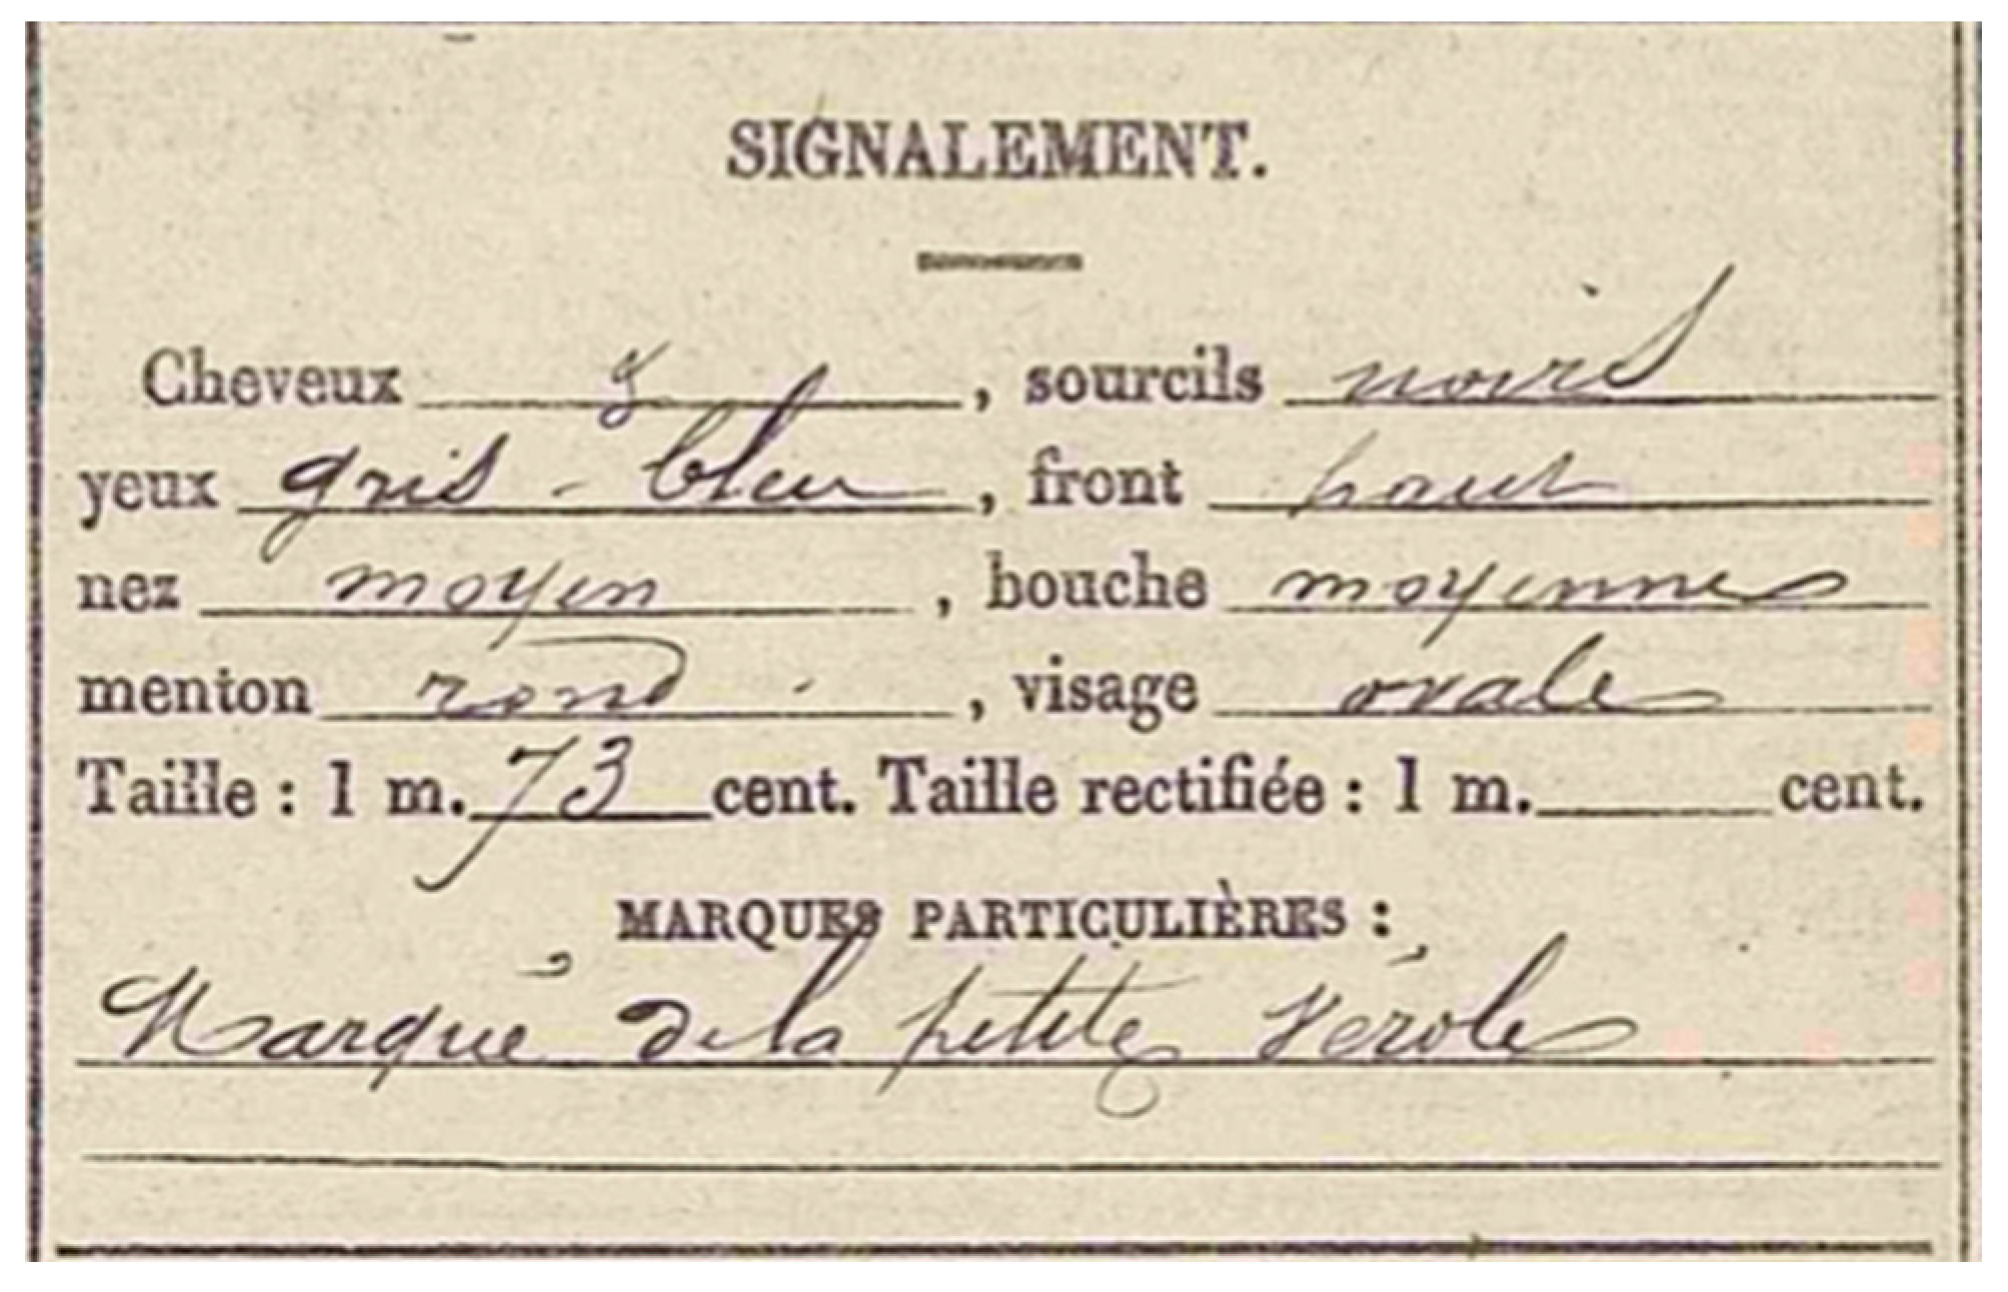 SIGNALEMENT.
Cheveux &, sourcils noirs
yeux gris - bleu, front haut
nez moyen, bouche moyenne
menton rond, visage ovale
Taille : 1 m. 73 cent. Taille rectifiée : 1 m. cent.
MARQUES PARTICULIÈRES :
Marqué de la petite vérole